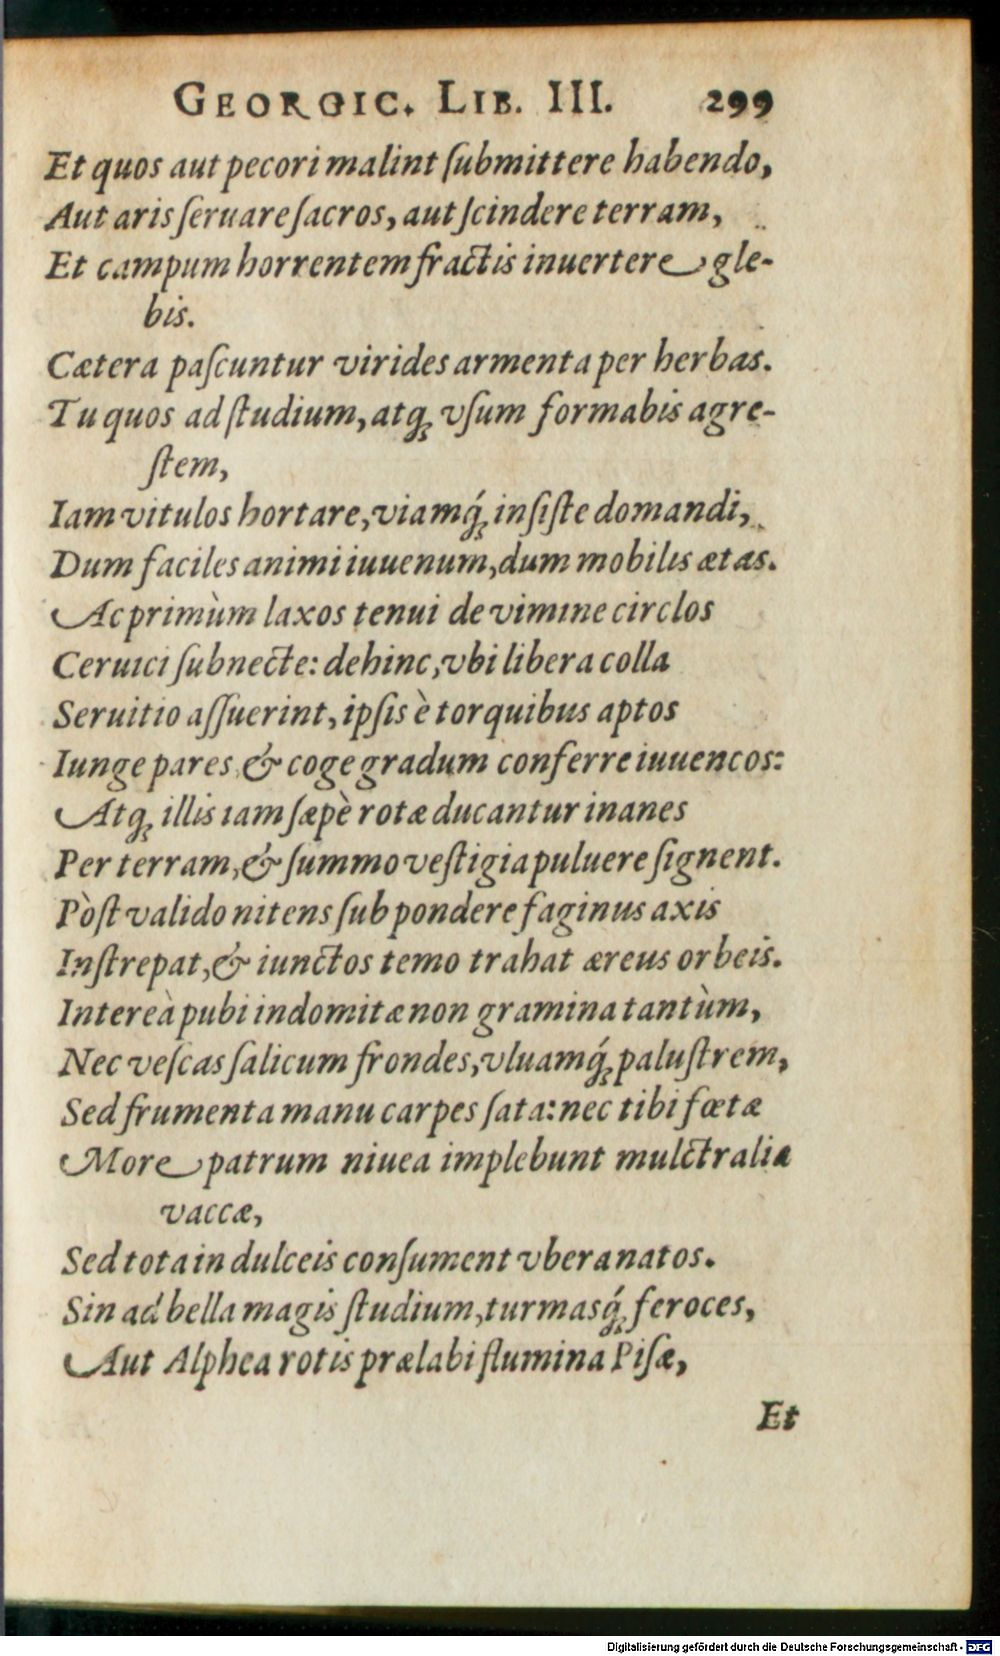 GEORGIC. LIB. III. 299
Et quos aut pecori malint ſubmittere habendo,
Aut aris ſeruare ſacros, aut ſcindere terram,
Et campum horrentem fractis inuertere gle-
bis.
Cætera paſcuntur virides armenta per herbas.
Tu quos ad ſtudium, atq; vſum formabis agre-
ſtem,
Iam vitulos hortare, viamq́; inſiſte domandi,
Dum faciles animi iuuenum, dum mobilis ætas.
Ac primùm laxos tenui de vimine circlos
Ceruici ſubnecte: dehinc, vbi libera colla
Seruitio aſſuerint, ipſis è torquibus aptos
Iunge pares, & coge gradum conferre iuuencos:
Atq; illis iam ſæpè rotæ ducantur inanes
Per terram, & ſummo veſtigia puluere ſignent.
Pòſt valido nitens ſub pondere faginus axis
Inſtrepat, & iunctos temo trahat æreus orbeis.
Intereà pubi indomitæ non gramina tantùm,
Nec veſcas ſalicum frondes, vluamq́; paluſtrem,
Sed frumenta manu carpes ſata: nec tibi fœtæ
More patrum niuea implebunt mulctralia
vaccæ,
Sed tota in dulceis conſument vbera natos.
Sin ad bella magis ſtudium, turmasq́; feroces,
Aut Alphea rotis prælabi flumina Piſæ,
Et
Digitalisierung gefördert durch die Deutsche Forschungsgemeinschaft - DFG